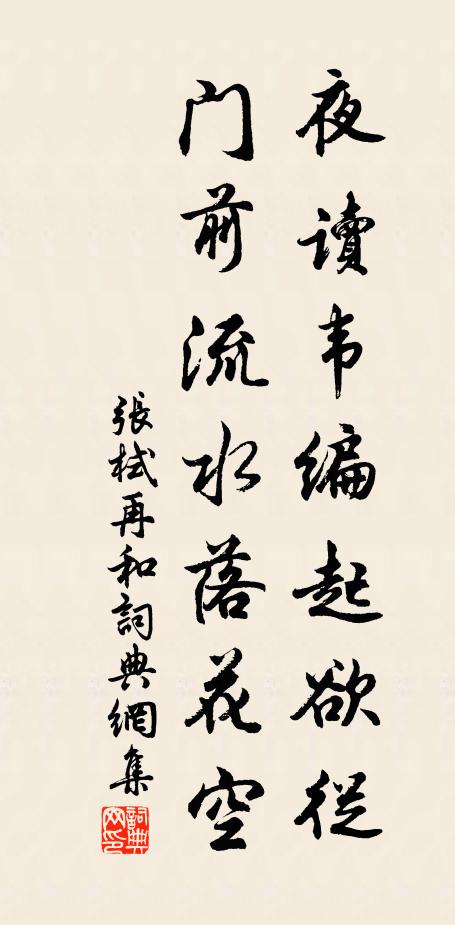 夜讀韦編起欲從
门前流水落花空
張栻再和詞典網集
詞典网印